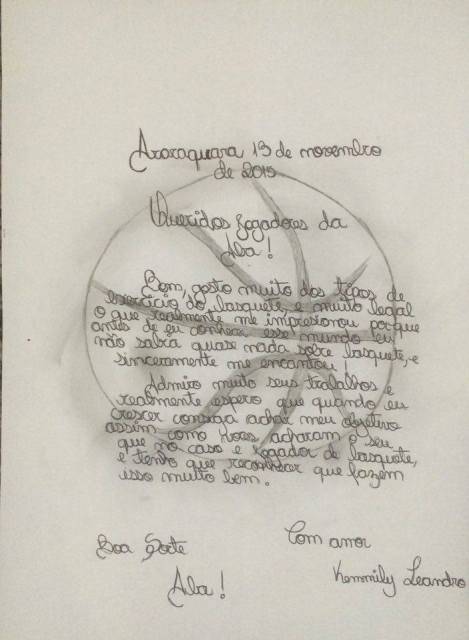 Araraquara 13 de novembro
de 2015
Queridos Jogadores da
Aba!
Bom, gosto muito dos tipos de
exercício do basquete, e muito legal
o que realmente me impresionou porque
antes de eu conhecer esse mundo eu
não sabia quase nada sobre basquete, e
sinceramente me encantou!
Admiro muito seus trabalhos e
realmente espero que quando eu
crescer consiga achar meu objetivo
assim como voces acharam o seu
que no caso e jogador de basquete,
e tenho que reconhecer que fazem
isso muito bem.
Boa Sorte
Aba!
Com amor
Kemmily Leandro